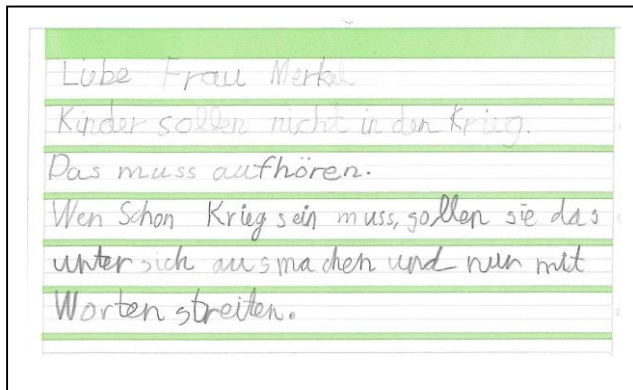 Liebe Frau Merkel
Kinder sollen nicht in den Krieg.
Das muss aufhören.
Wen Schon Krieg sein muss, sollen sie das
unter sich ausmachen und nur mit
Worten streiten.